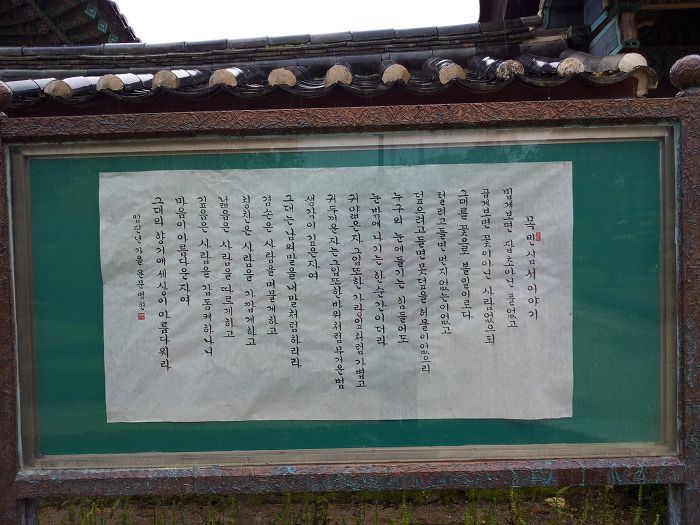 목민심서 이야기
밉게보면 잡초아닌 풀없고
곱게보면 꽃이아닌 사람없으되
그대를 꽃으로 볼일이로다
털려고들면 먼지없는이없고
덮으려고들면 못덮을 허물이없으되
누구의 눈에들기는 힘들어도
눈밖에나기는 한순간이더라
귀얇은자 그입또한 가랑잎처럼가볍고
귀두꺼운자는 그입또한 바위처럼무거운법
생각이 깊은자여
그대는남의말을내말처럼하리라
겸손은 사람을머물게하고
칭찬은 사람을 가깝게하고
넓음은 사람을 따르게하고
깊음은 사람을 감동케하나니
마음이 아름다운자여
그대의 향기에 세상이 아름다워라
임진년 가을